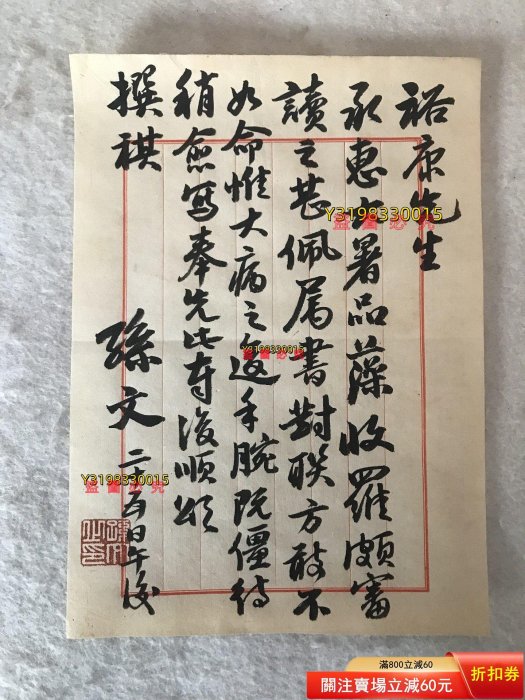 裕康先生
承惠大著品藻收羅頗富
讀之甚佩屬書對聯方敢不
如命惟大病之後手腕既僵待
稍愈寫奉先此專復順頌
撰祺
孫文 二十五日午後
孫文之印
Y3198330015
盜圖必究
Y3198330015
盜圖必究
Y3198330015
盜圖必究
滿800立減60
關注賣場立減60元
折扣券